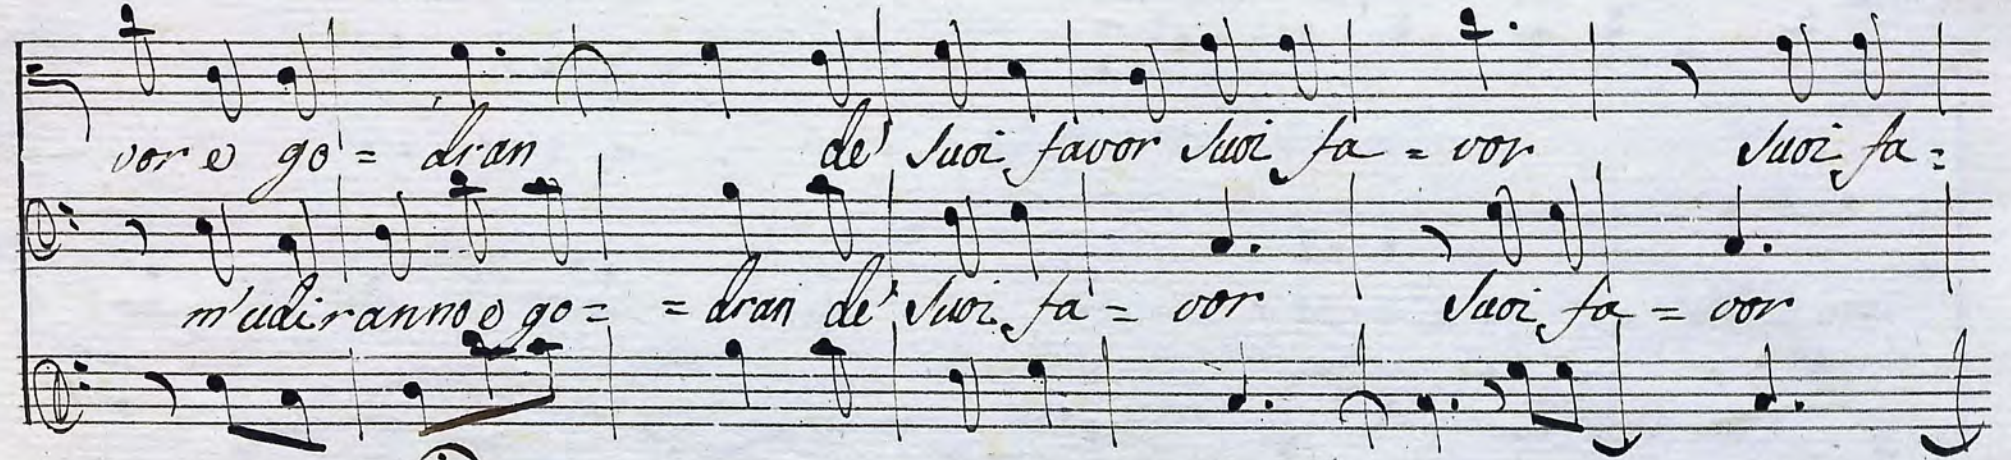 vor e go = dran de' suoi favor suoi fa = vor suoi fa =
m'udiranno e go = = dran de' suoi fa = vor suoi fa = vor